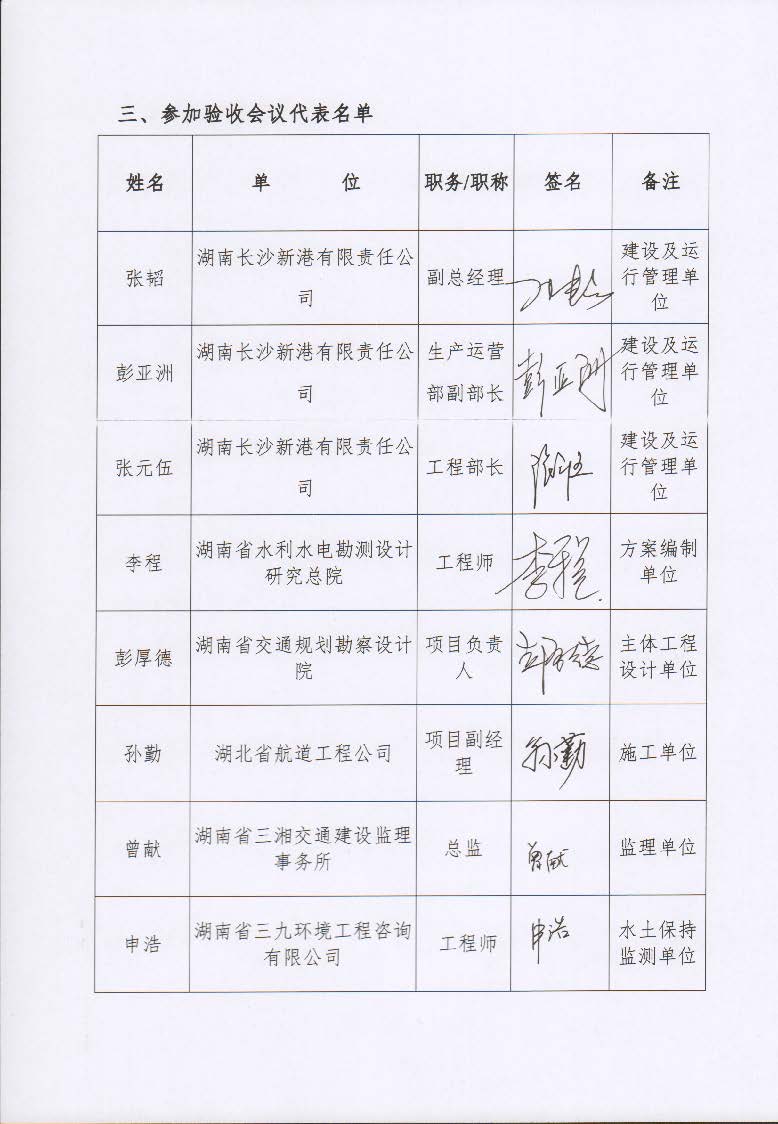 三、参加验收会议代表名单
姓名 单 位 职务/职称 签名 备注
张韬
湖南长沙新港有限责任公
司
副总经理
建设及运
行管理单
位
彭亚洲
湖南长沙新港有限责任公
司
生产运营
部副部长
彭亚洲
建设及运
行管理单
位
张元伍
湖南长沙新港有限责任公
司
工程部长
建设及运
行管理单
位
李程
湖南省水利水电勘测设计
研究总院
工程师
李程
方案编制
单位
彭厚德
湖南省交通规划勘察设计
院
项目负责
人
彭厚德
主体工程
设计单位
孙勤
湖北省航道工程公司
项目副经
理
孙勤
施工单位
曾献
湖南省三湘交通建设监理
事务所
总监
曾献
监理单位
申浩
湖南省三九环境工程咨询
有限公司
工程师
申浩
水土保持
监测单位